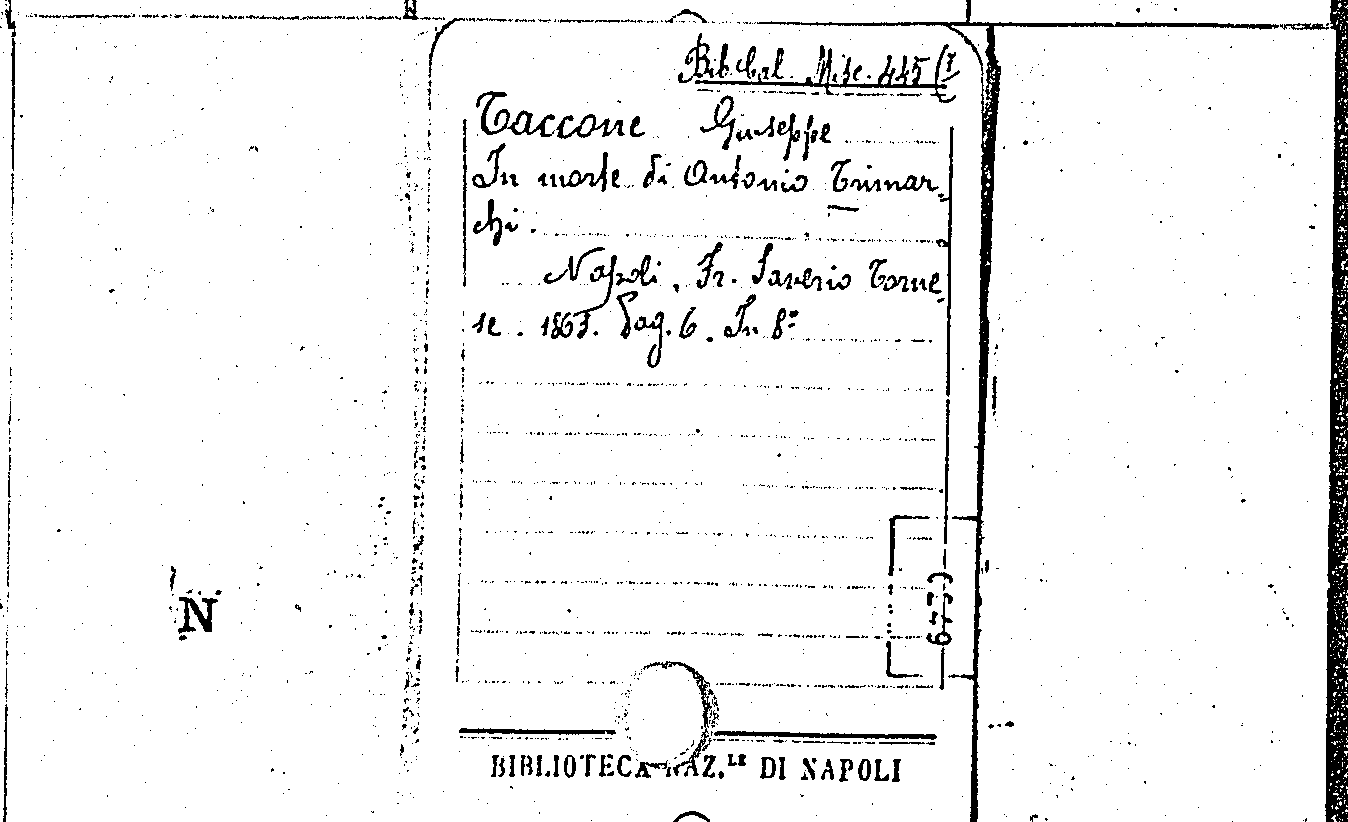 Bib. Cal. Misc. 445 (I
Taccone Giuseppe
In morte di Antonio Trimar-
chi.
Napoli, Fr. Saverio Torne-
se. 1863. Pag. 6. In 8°
N
BIBLIOTECA NAZ.LE DI NAPOLI